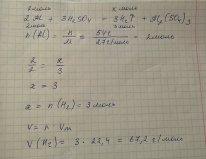 2 моль x моль
2 Al + 3H₂SO₄ = 3H₂↑ + Al₂(SO₄)₃
2 моль 3 моль
n(Al) = m/M = 54г / 27г/моль = 2 моль
2/2 = x/3
x = 3
x = n(H₂) = 3 моль
V = n Vm
V(H₂) = 3 · 22,4 = 67,2 г/моль